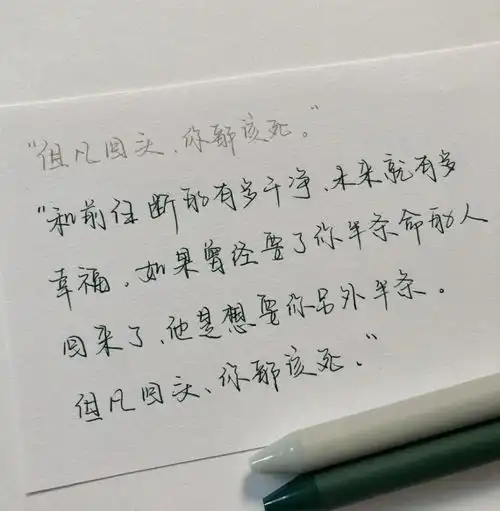 "但凡回头、你都该死。"
"和前任断的有多干净、未来就有多
幸福，如果曾经要了你半条命的人
回来了、他是想要你另外半条。
但凡回头、你都该死。"